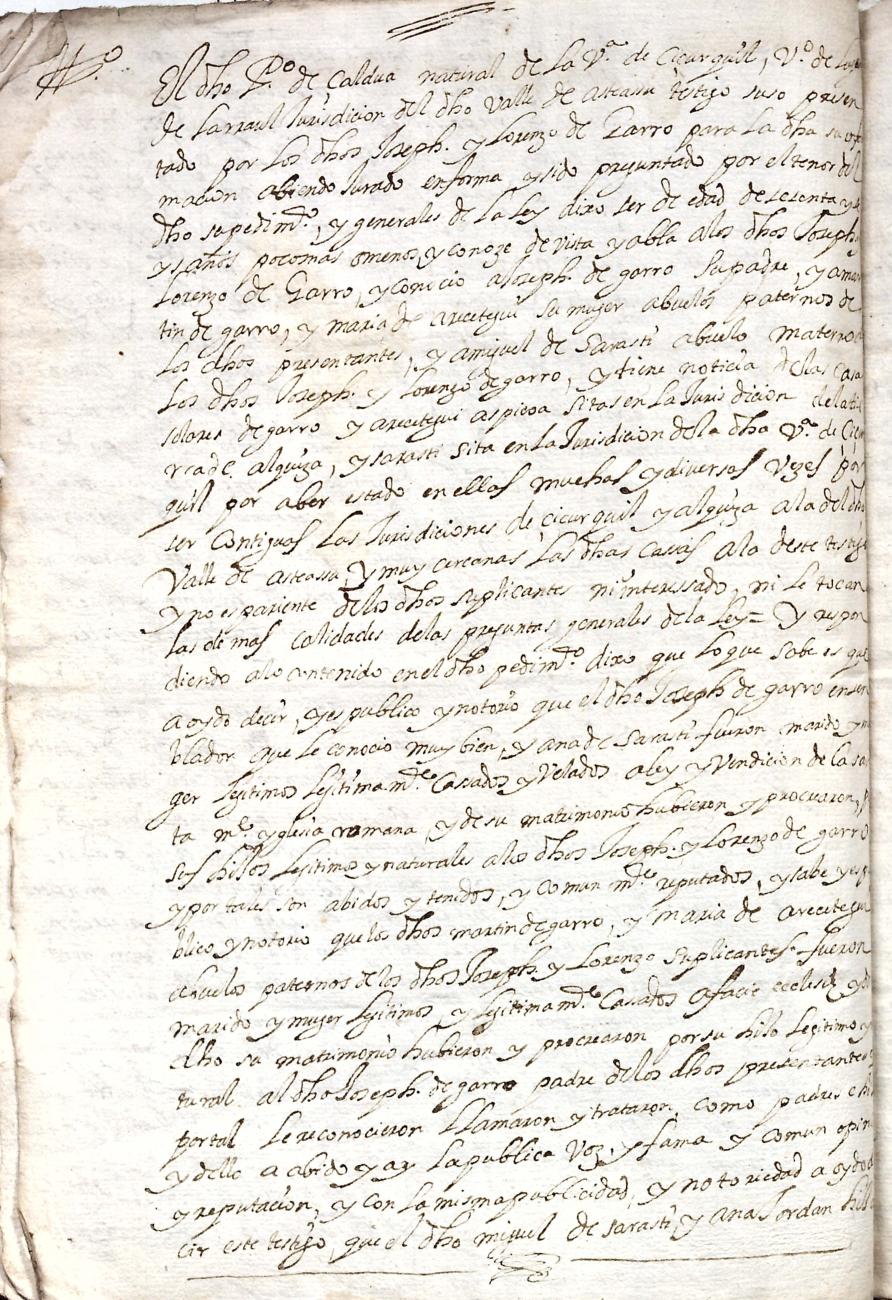 tº
El dho Pº de Caldua natural de La Vª de Cicurquil, Vº de
de Larraul Jurisdicion del dho Valle de asteasu testigo suso presen
tado por Los dhos Joseph. y Lorenzo de Garro para La dha
macion abiendo Jurado en forma y sido preguntado por el tenor del
dho su pedimtº, y generales de la Ley dixo ser de edad de sesenta y
y s años poco mas o menos, y conoze de vista y abla a los dhos Joseph y
Lorenzo de Garro, y conocio a Joseph. de garro su padre, y a mar
tin de garro, y maria de arecetegui su mujer abuelos paternos de
los dhos presentantes, y a miguel de Sarasti abuelo materno
Los dhos Joseph. y Lorenzo de garro, y tiene noticia de las Casa
solares de garro y arecetegui aspicoa sitas en La Jurisdicion de la
de alquiza, y sarasti sita en La Jurisdicion de la dha Vª de Cicur
quil por aber estado en ellas muchas y diversas Vezes por
ser Contiguas Las Jurisdiciones de cicurquil y alquiza a la del dho
Valle de asteasu, y muy cercanas Las dhas Casas a la deste testigo
y no es pariente de los dhos suplicantes ni interessado, ni le tocan
las demas calidades de las preguntas generales de la Ley = Y respon
diendo a lo contenido en el dho pedimtº dixo que Lo que sabe es que
a oydo decir, y es publico y notorio que el dho Joseph de garro ensen
blador que le conocio muy bien, y ana de Sarasti fueron marido y mu
ger lejitimos lejitimamte Cassados y Velados a ley y Vendicion de la san
ta me yglesia romana y de su matrimonio hubieron y procrearon, p
sus hijos lejitimos y naturales a los dhos Joseph. y Lorenzo de garro
y por tales son abidos y tenidos, y comunmte reputados, y sabe y es p
blico y notorio que los dhos martin de garro, y maria de arecetegui
abuelos paternos de los dhos Joseph. y Lorenzo suplicantes fueron
marido y mujer lejitimos y lejitimamte Casados a facie eclesie y
dho su matrimonio hubieron y procrearon por su hijo legitimo y
tural al dho Joseph. de garro padre de los dhos presentantes
por tal le reconocieron llamaron y trataron, como padres e hi
y dello a abido y ay la publica Voz, y fama y comun opin
y reputacion, y con la misma publicidad, y notoriedad a oydo de
cir este testigo, que el dho miguel de sarasti, y ana Jordan